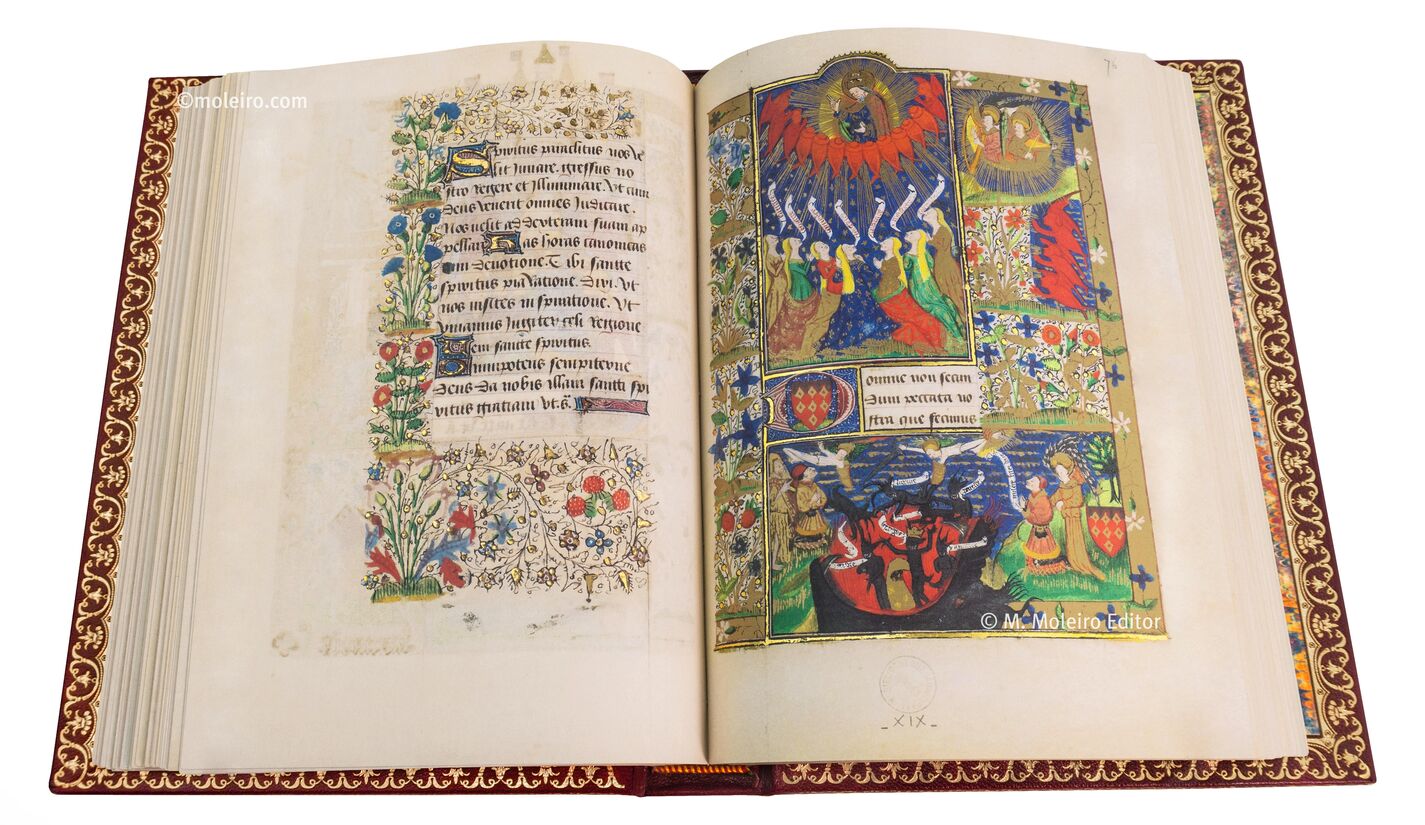 ©moleiro.com
Spiritus paraclitus nos ve
lit iuvare. gressus no
stro regere et illuminare. Vt cum
deus venerit omnes iudicare.
Nos uelit ad dexteram suam ap
pellar Has horas canonicas
cum devotione. T ibi sancte
spiritus pia ratione. dixi. Vt
nos visites inspiratione. Vt
vivamus iugiter celi regione
sancte spiritus.
mnipotens sempiterne
deus da nobis illam sancti spi
ritus gratiam vt. &.
78
Domine non secun
dum peccata no
stra que fecimus
© M. Moleiro Editor
_XIX_